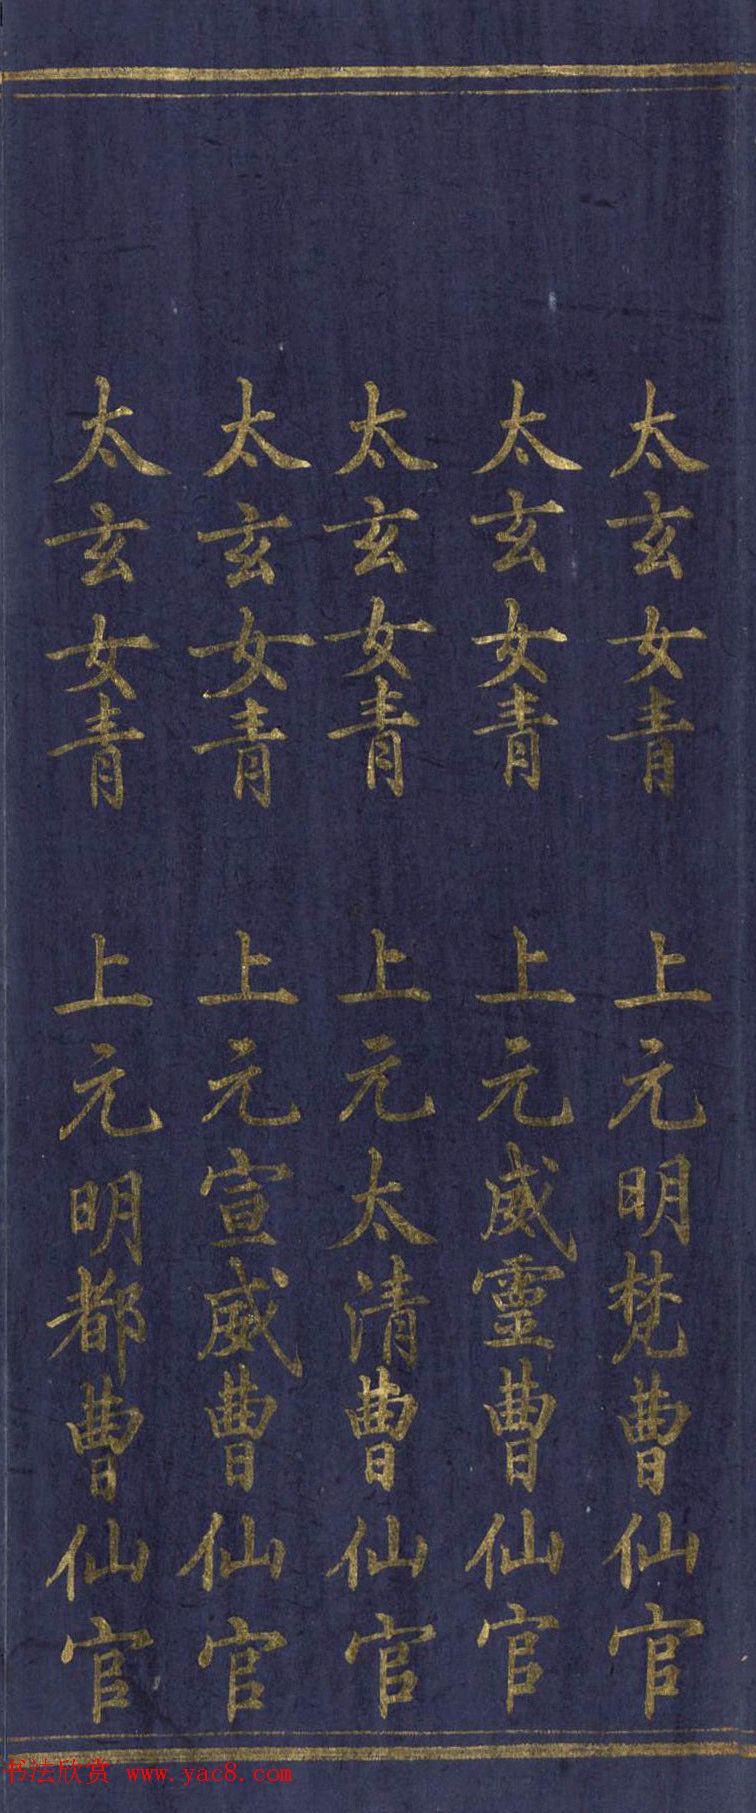 太玄女青 上元明梵曹仙官
太玄女青 上元威靈曹仙官
太玄女青 上元太清曹仙官
太玄女青 上元宣威曹仙官
太玄女青 上元明都曹仙官
书法欣赏 www.yac8.com